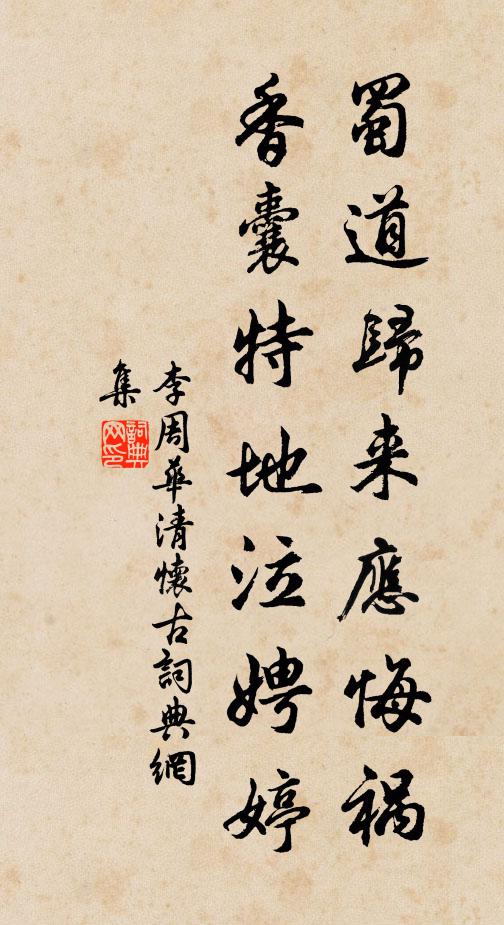 蜀道歸来應悔禍
香囊特地泣娉婷
李周華清懷古詞典網
集
詞典网印